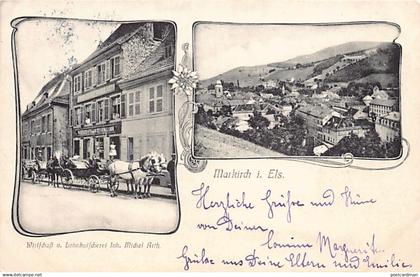 Markirch i. Els.
Wirtschaft u. Lohnkutscherei Inh. Michel Arth.
Herzliche Grüße und Küsse
von Deiner
Cousine Marguerit
Grüße uns Deine Eltern und Emilie